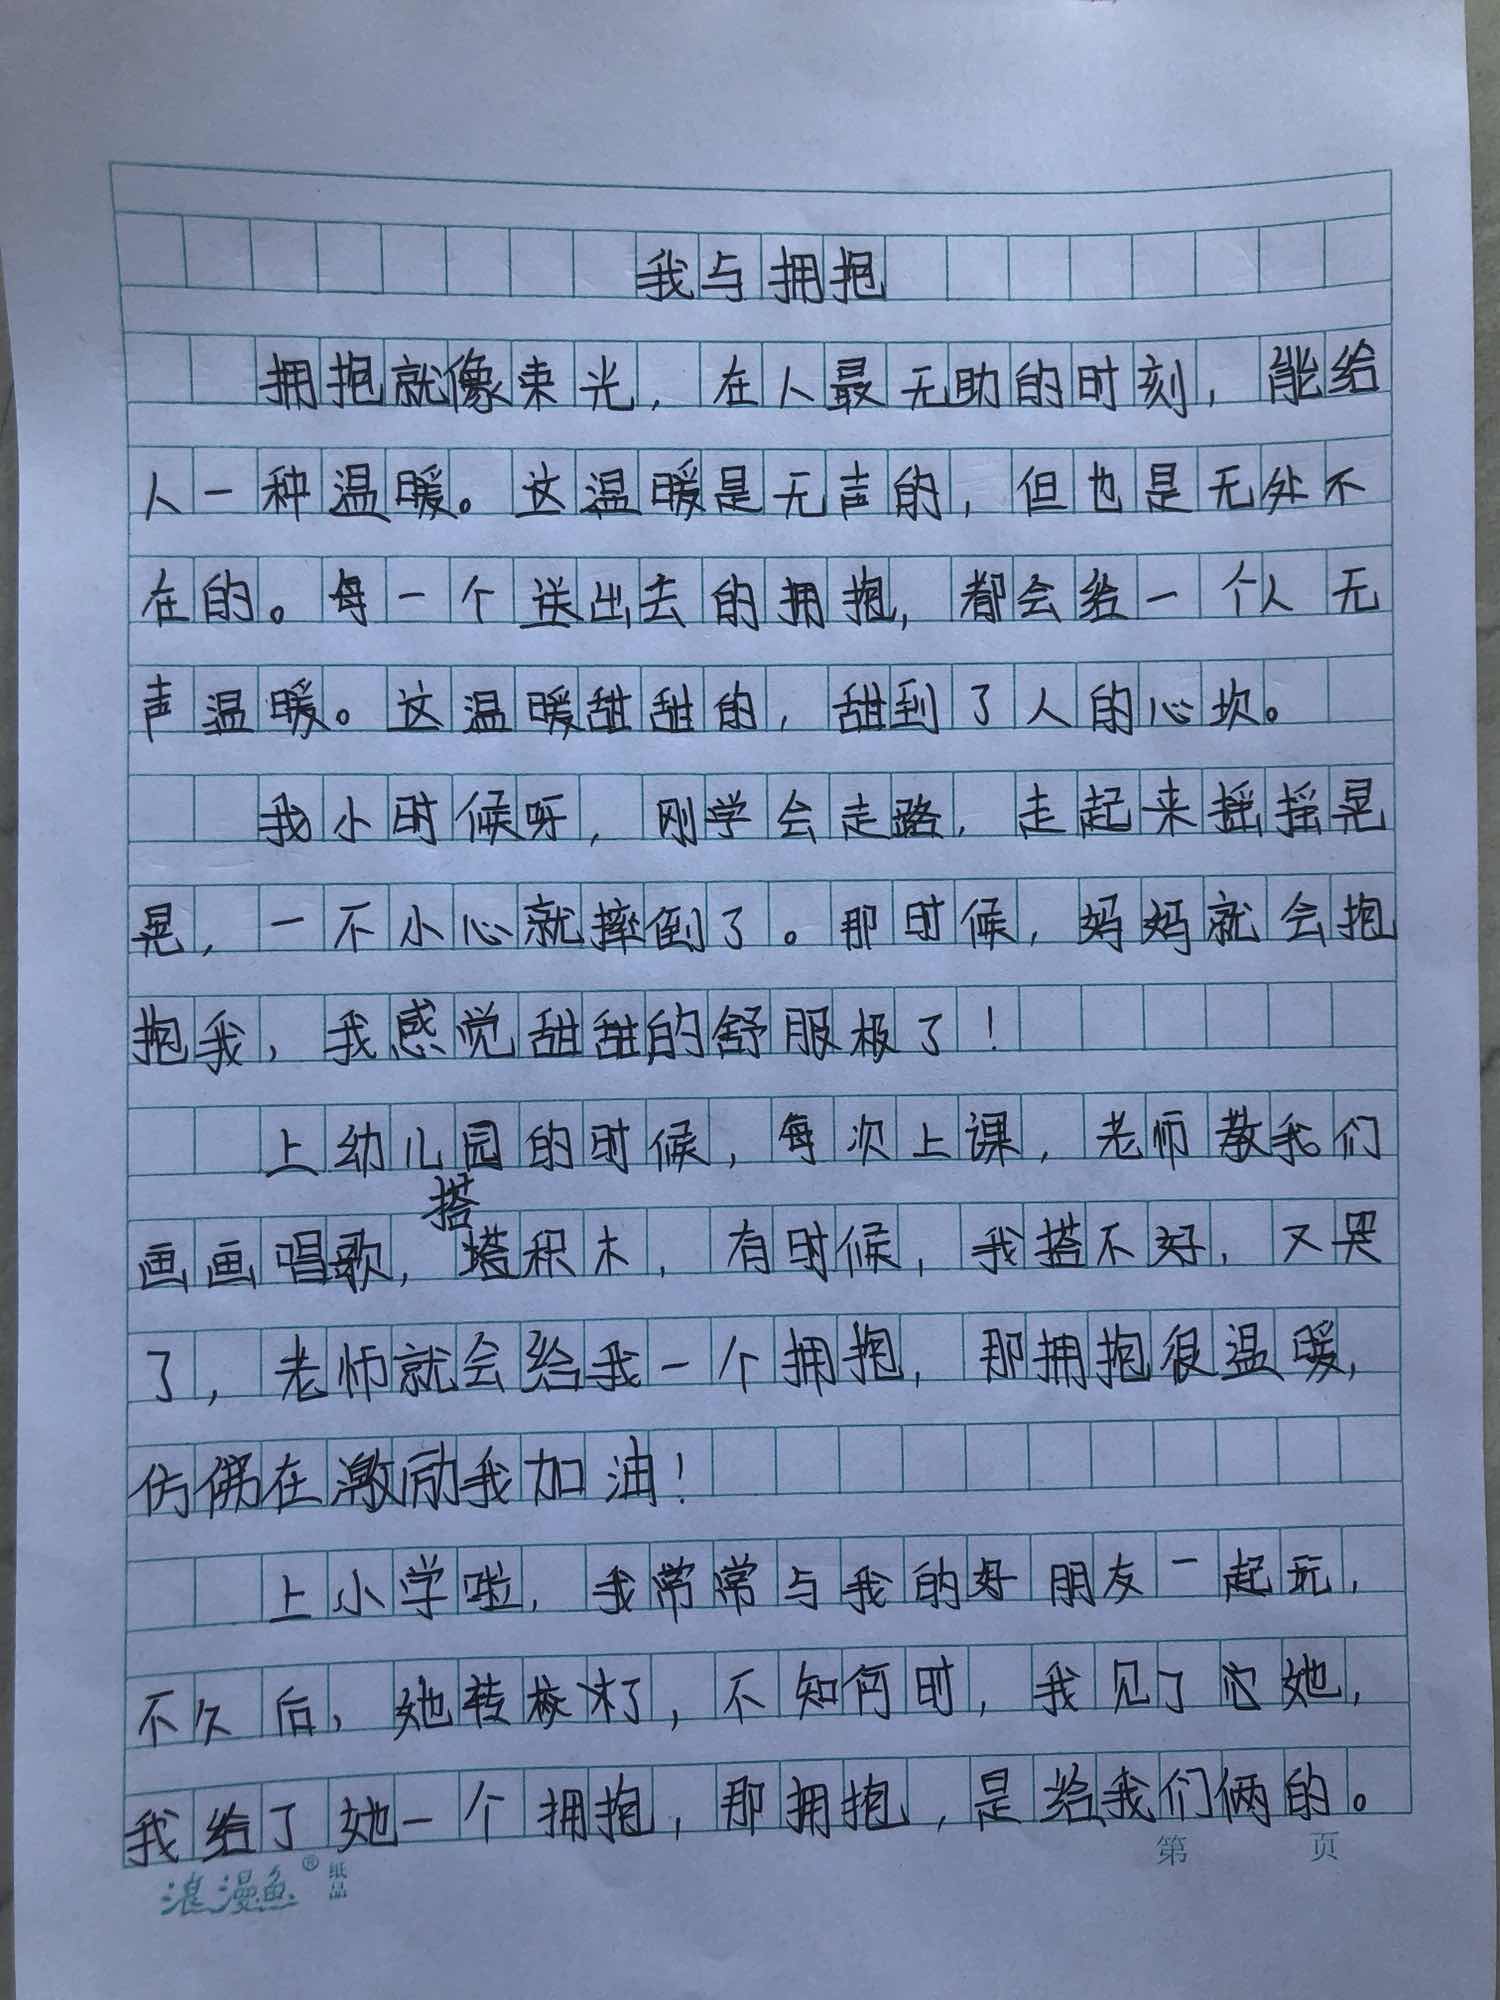 我与拥抱
拥抱就像束光，在人最无助的时刻，能给
人一种温暖。这温暖是无声的，但也是无处不
在的。每一个送出去的拥抱，都会给一个人无
声温暖。这温暖甜甜的，甜到了人的心坎。
我小时候呀，刚学会走路，走起来摇摇晃
晃，一不小心就摔倒了。那时候，妈妈就会抱
抱我，我感觉甜甜的舒服极了！
上幼儿园的时候，每次上课，老师教我们
搭
画画唱歌，塔积木，有时候，我搭不好，又哭
了，老师就会给我一个拥抱，那拥抱很温暖，
仿佛在激励我加油！
上小学啦，我常常与我的好朋友一起玩，
不久后，她转校了，不知何时，我见了她，
我给了她一个拥抱，那拥抱，是给我们俩的。
浪漫鱼®纸品
第 页